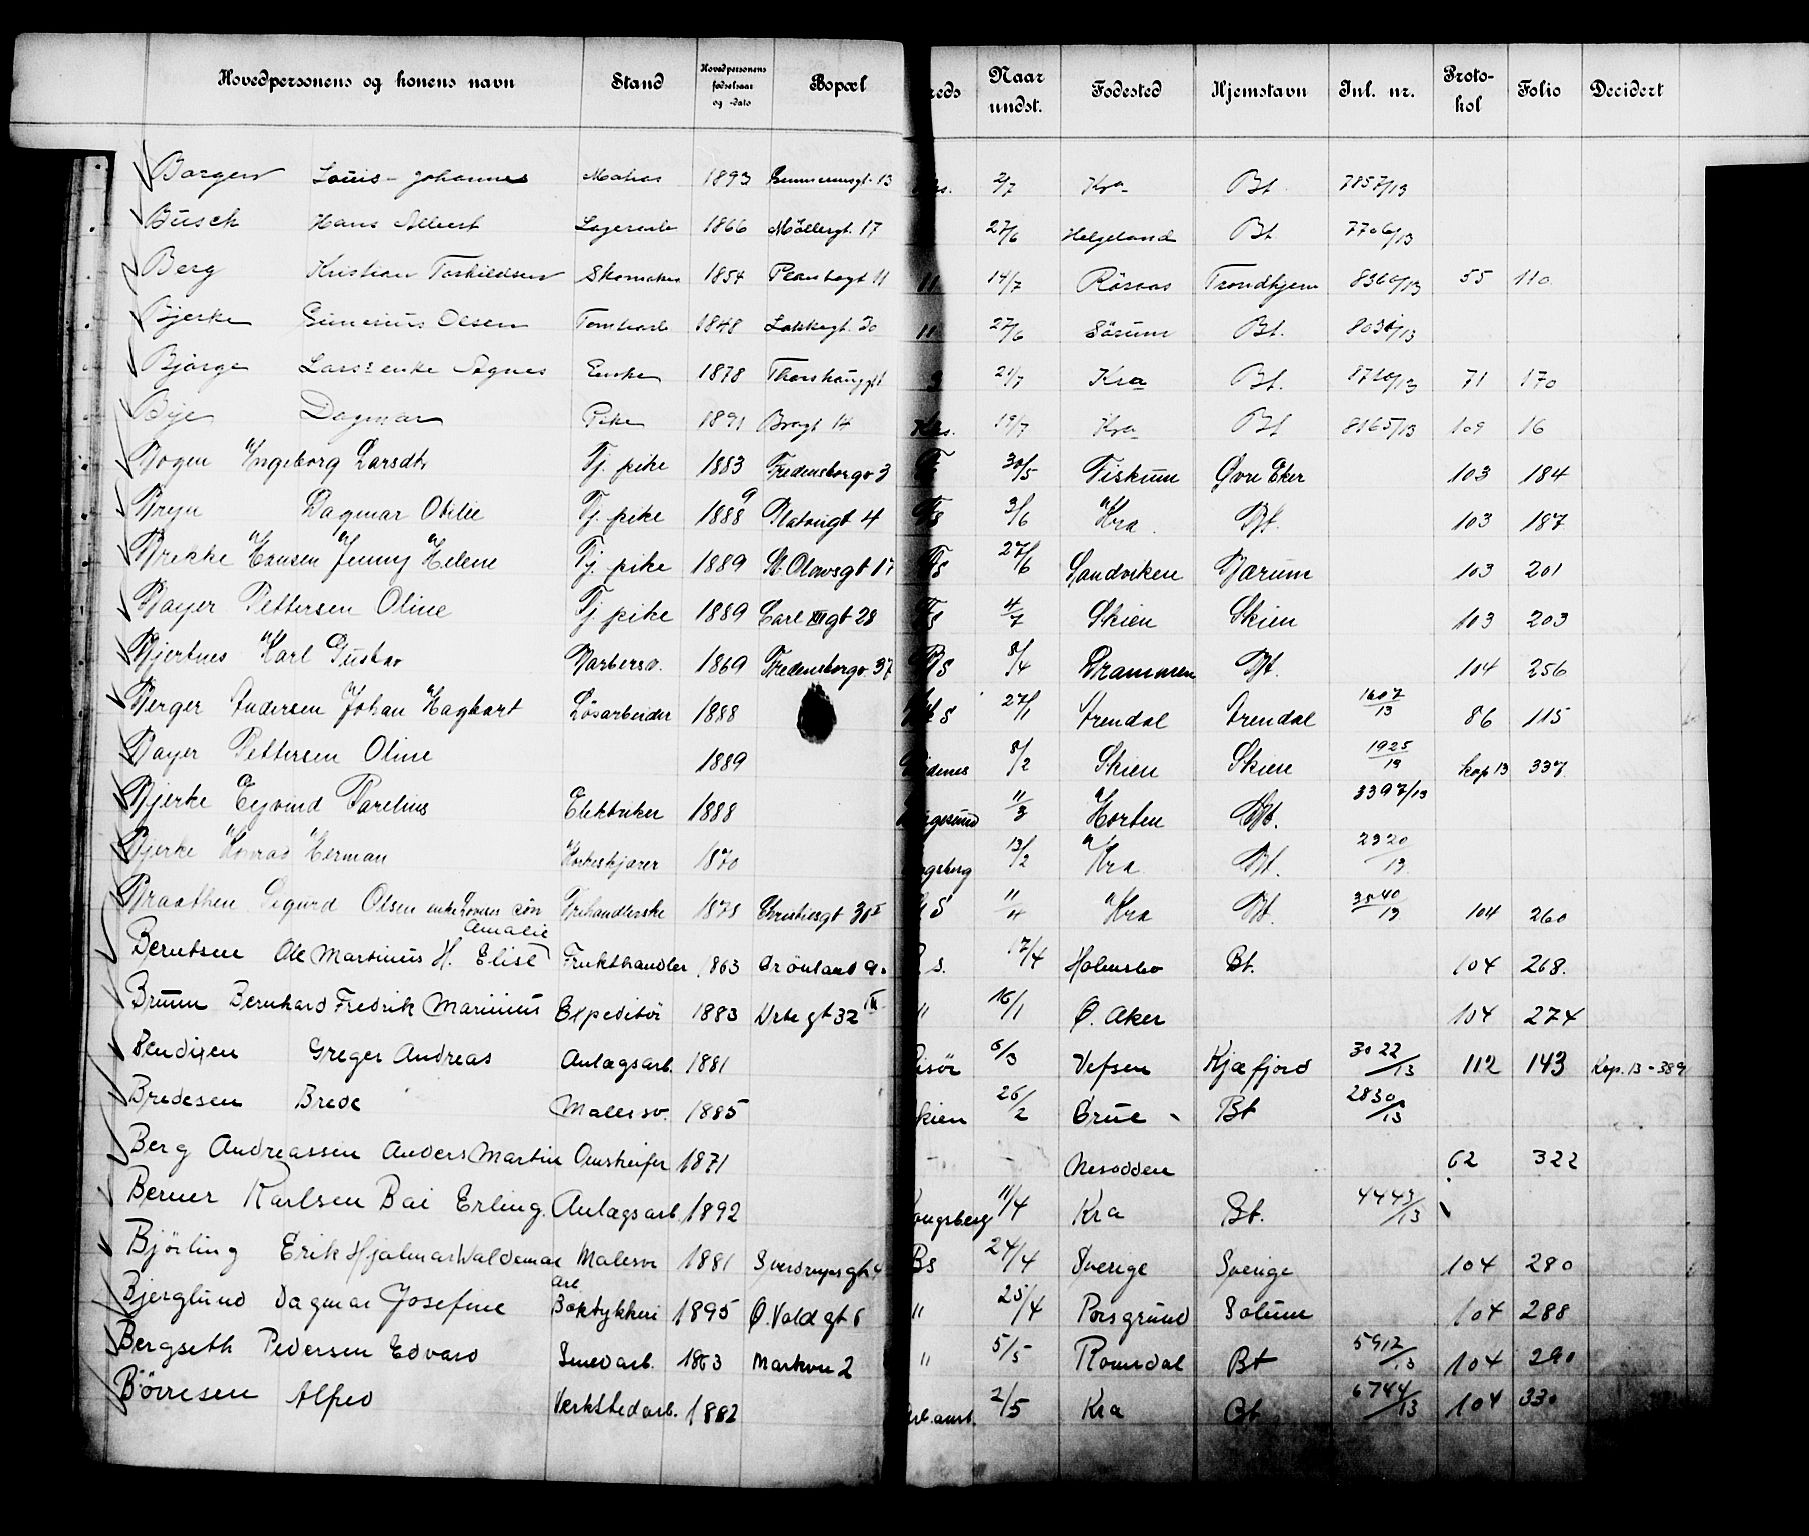 Hovedpersonens og konens navn Stand Hovedpersonens fødselsaar og -dato Bopæl reds Naar undst. Fødested Hjemstavn Inl. nr. Proto-kol Folio Decidert
Borgen Louis Johannes 1893 13 2/7 Kra Bt. 7857/13
Busch Hans Albert Lagerarb 1866 Møllergt. 17 27/6 Helgeland Bt. 7706/13
Berg Kristian Torkildsen Skomaker 1854 11 11 14/7 Röraas Trondhjem 8360/13 55 110
Bjerke Gunerius Olsen Tomtearb 1848 Lakkegt. 20 11 27/6 Sörum Bt. 8030/13
Bjørge Lars's enke Agnes Enke 1878 Thorshauggt 9 21/7 Kra Bt. 8720/13 71 170
Bye Dagmar Pike 1891 Bragt 14 Krs. 19/7 Kra Bt 8165/13 109 16
Bogen Ingeborg Larsdtr Tj. pike 1883 Fredensborgv 3 Fs 30/5 Fiskum Øvre Eker 103 184
Bryn Dagmar Otilie Tj. pike 1888 9 Platougt 4 Fs 3/6 Kra Bt. 103 187
Brekke Hansen Jenny Helene Tj. pike 1889 St. Olavsgt 17 Fs 27/6 Sandviken Bærum 103 201
Bayer Pettersen Oline Tj. pike 1889 Carl XII gt 28 Fs 4/7 Skien Skien 103 203
Bjertnes Karl Gustav Barbersv. 1869 Fredensborgv. 37 Bs 8/4 Drammen Bt. 104 256
Berger Andersen Johan Haghart Løsarbeider 1888 S 27/1 Arendal Arendal 1607/13 86 115
Bayer Pettersen Oline 1889 8/2 Skien Skien 1925/13 Kop 13 337
Bjerke Eyvind Parelius Elektriker 1888 gesund 11/3 Horten Bt. 3397/13
Bjerke Konrad Herman 1870 ngsberg 13/2 Kra Bt. 2320/13
Braathen Sigurd Olsen enke Lovise Frihandlerske 1875 Christiesgt 30 I S 11/4 Kra Bt 3540/13 104 260
Amalie
Berntsen Ole Martinius H. Elise Frukthandler 1863 Grönland 9 s. 17/4 Holmsbo Bt. 104 268.
Bruun Bernhard Fredrik Marinius Expeditör 1883 Urte gt 32 IV " 16/1 Ø. Aker 104 274
Bendixen Greger Andreas Anlægsarb. 1881 isör 6/3 Vefsen Kjæfjord 3022/13 112 143 Kop. 13 - 389
Bredesen Brede Malersv. 1885 kien 26/2 Grue Bt 2830/13
Berg Andreassen Anders Martin 1871 - - Nesodden 62 322
Berner Karlsen Bai Erling. Anlægsarb. 1892 ongsberg 11/4 Kra Bt. 4443/13
Björling Erik Hjalmar Waldemar Malersv 1881 Sverdrupsgt 4 Bs 24/4 Sverige Sverige 104 280
Bjerglund Dagmar Josefine arb Boktykkeri 1895 Ø. Vold gt 6 " 25/4 Porsgrund Solum 104 288
Bergseth Pedersen Edvard Smedarb. 1863 Markvn 2 " 5/5 Romsdal Bt 5912/13 104 290
Börresen Alfred Verkstedarb. 1882 arb.anst. 2/5 Kra Bt 6744/13 104 330